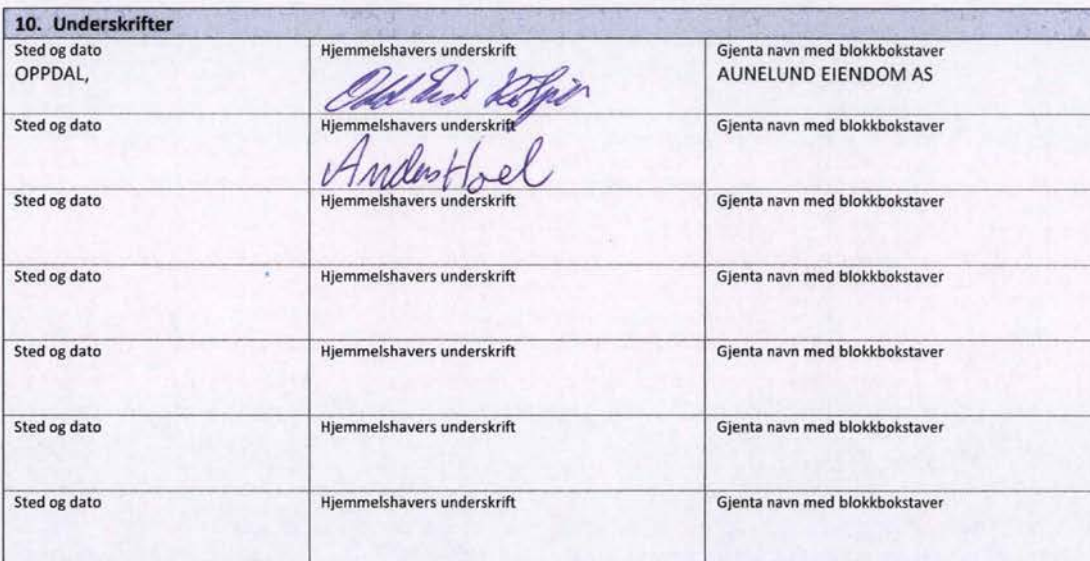 10. Underskrifter
Sted og dato Hjemmelshavers underskrift Gjenta navn med blokkbokstaver
OPPDAL, AUNELUND EIENDOM AS
Sted og dato Hjemmelshavers underskrift Gjenta navn med blokkbokstaver
Anders Hoel
Sted og dato Hjemmelshavers underskrift Gjenta navn med blokkbokstaver
Sted og dato Hjemmelshavers underskrift Gjenta navn med blokkbokstaver
Sted og dato Hjemmelshavers underskrift Gjenta navn med blokkbokstaver
Sted og dato Hjemmelshavers underskrift Gjenta navn med blokkbokstaver
Sted og dato Hjemmelshavers underskrift Gjenta navn med blokkbokstaver